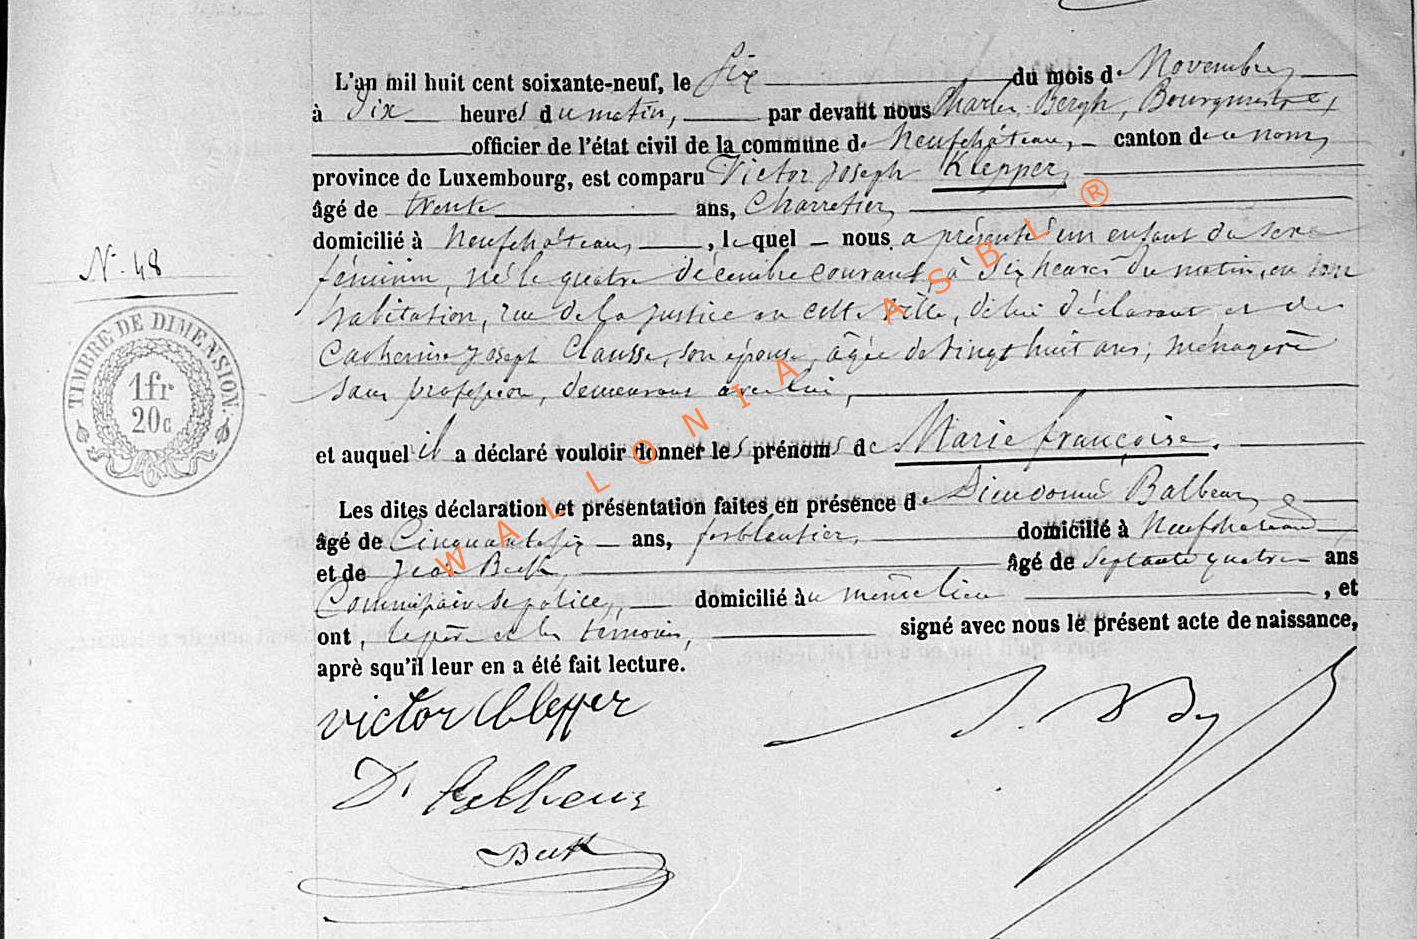 L'an mil huit cent soixante-neuf, le six du mois de Novembre,
à Dix heures du matin, par devant nous Charles Bergh, Bourgmestre,
officier de l'état civil de la commune de Neufchâteau, canton de ce nom,
province de Luxembourg, est comparu Victor Joseph Klepper,
âgé de trente ans, Charretier,
domicilié à Neufchâteau, , lequel nous a présenté un enfant du sexe
N. 48
féminin, né le quatre décembre courant, à six heures du matin, en son
habitation, rue de la Justice en cette ville, de lui déclarant et de
TIMBRE DE DIMENSION.
1fr
20c
Catherine Joseph Clausse, son épouse, âgée de vingt huit ans, ménagère
sans profession, demeurant avec lui,
et auquel il a déclaré vouloir donner les prénoms de Marie françoise.
Les dites déclaration et présentation faites en présence de Dieudonné Balbeur,
âgé de Cinquante six ans, ferblantier, domicilié à Neufchâteau,
et de Jean Beck, âgé de septante quatre ans
Commissaire de police, domicilié au même lieu , et
ont, le père et les témoins, signé avec nous le présent acte de naissance,
aprè squ'il leur en a été fait lecture.
victor Clepper
Dé Balbeur
Beck
WALLONIA ASBL ®